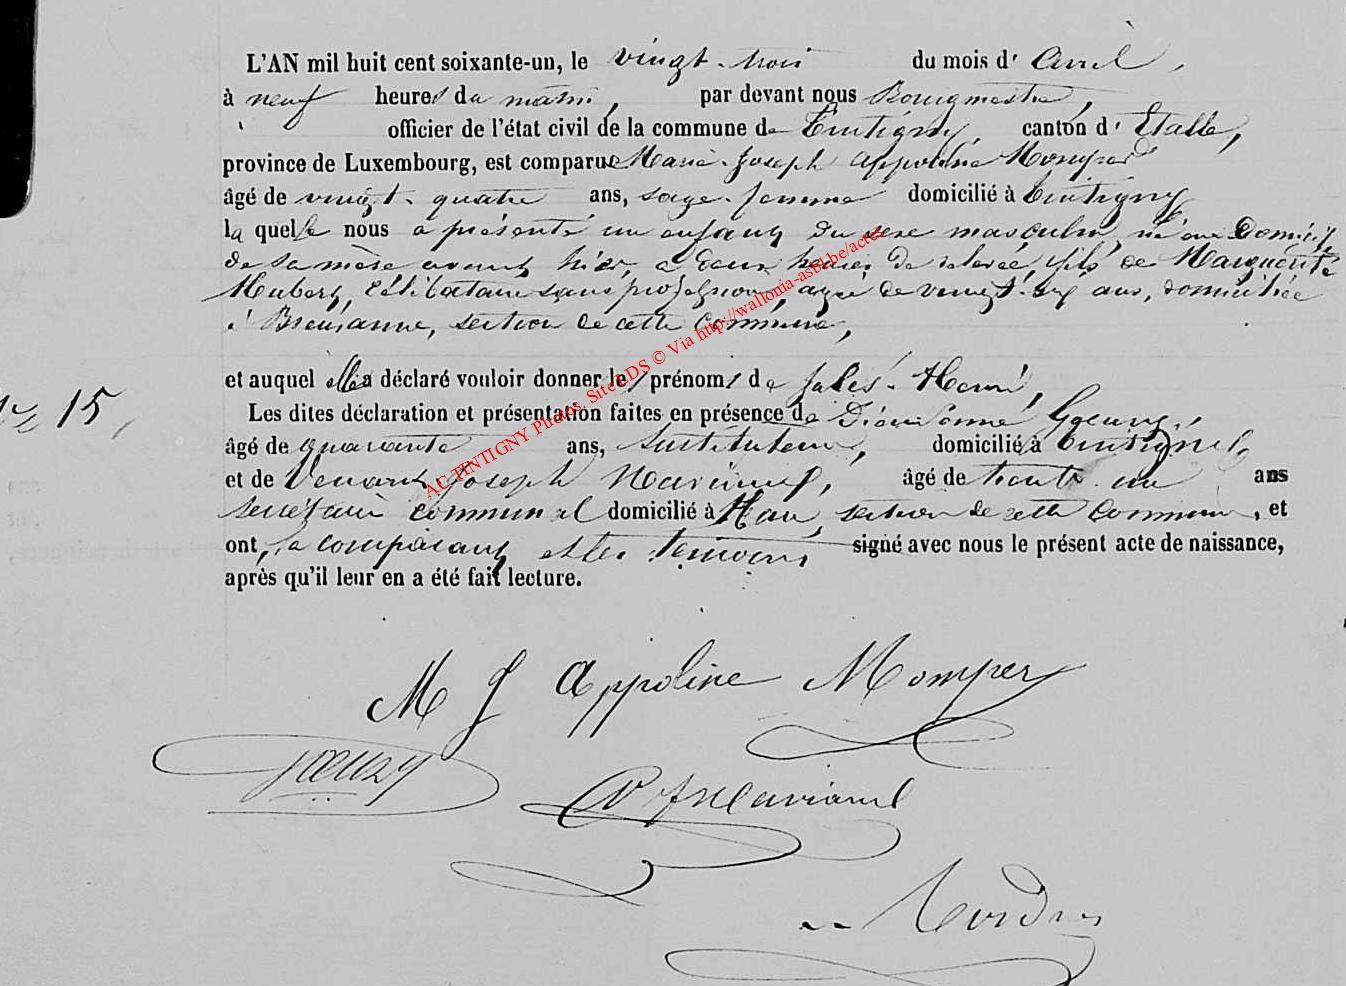 L'AN mil huit cent soixante-un, le vingt-trois du mois d' avril,
à neuf heures du matin, par devant nous Bourgmestre,
officier de l'état civil de la commune de Tintigny, canton d' Etalle,
province de Luxembourg, est comparue Marie-Joseph Appoline Momper
âgé de vingt-quatre ans, sage-femme domicilié à Tintigny
laquelle nous a présenté un enfant du sexe masculin, né au Domicile
de sa mère avant hier, à deux heures de relevée, fils de Marguerite
Hubert, célibataire sans profession, agée de vingt-six ans, domiciliée
à Breuvanne, section de cette commune,
et auquel elle a déclaré vouloir donner les prénoms de Jules-Henri,
N° 15,
Les dites déclaration et présentation faites en présence de Dieudonné Goeury,
âgé de quarante ans, instituteur, domicilié à Tintigny
et de Joseph âgé de trente un ans
secrétaire communal domicilié à Han, section de cette commune, et
ont, la comparante et les témoins signé avec nous le présent acte de naissance,
après qu'il leur en a été fait lecture.
AC TINTIGNY Photos. Site LDS © Via http://wallonia-asbl.be/actes
M J Appoline Momper
Goeury